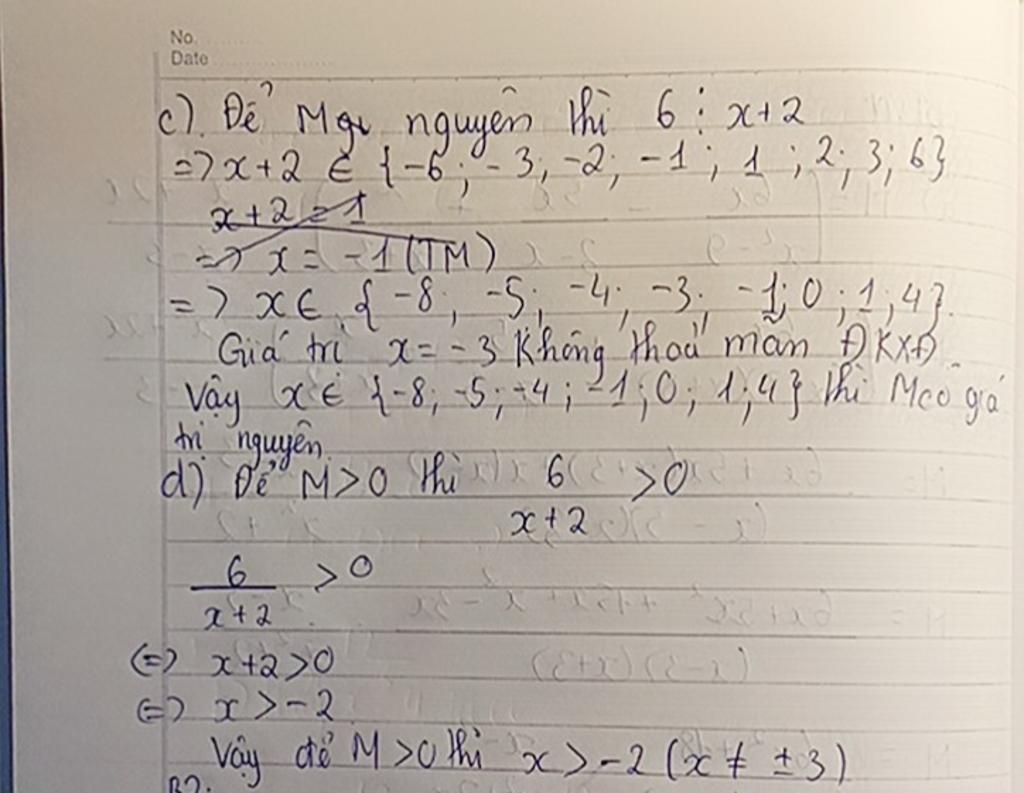 No.
Date
c). Để Mọi nguyên thì 6 ⋮ x+2
=> x+2 ∈ {-6; -3; -2; -1; 1; 2; 3; 6}
x+2 = 1
=> x = -1 (TM)
=> x ∈ {-8; -5; -4; -3; -1; 0; 1; 4}.
Giá trị x = -3 không thoả mãn ĐKXĐ
Vậy x ∈ {-8; -5; -4; -1; 0; 1; 4} thì M có giá
trị nguyên.
d) Để M > 0 thì 6/x+2 > 0
6/x+2 > 0
<=> x+2 > 0
<=> x > -2
Vậy để M > 0 thì x > -2 (x ≠ ±3)